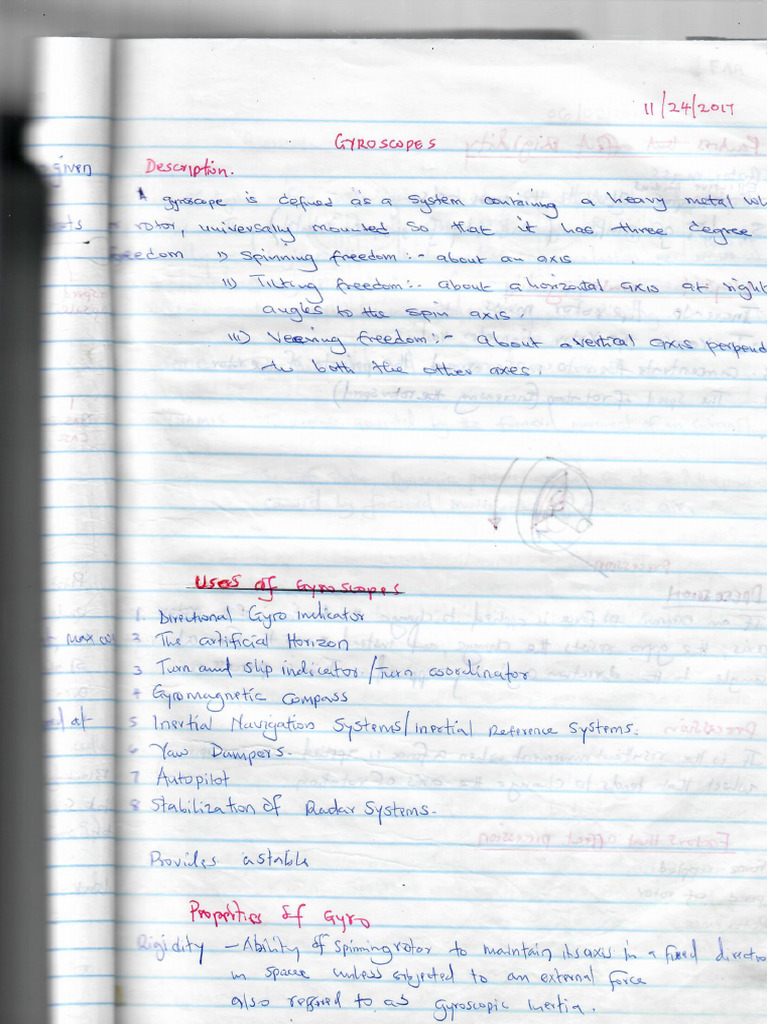 11/24/2017
GYROSCOPES
given
Description.
A gyroscope is defined as a system containing a heavy metal
rotor, universally mounted so that it has three degree
freedom i) Spinning freedom :- about an axis
ii) Tilting freedom:- about a horizontal axis at right
angles to the spin axis.
iii) Veering freedom:- about a vertical axis perpend
to both the other axes.
Uses of Gyroscopes
1. Directional Gyro Indicator
2 The artificial Horizon
3 Turn and slip indicator / Turn coordinator
4 Gyromagnetic Compass
5 Inertial Navigation Systems/inertial Reference Systems.
6 Yaw Dampers.
7 Autopilot
8 Stabilization of Radar Systems.
Provides a stable
Properties of Gyro
Rigidity - Ability of spinning rotor to maintain its axis in a fixed directio
in space unless subjected to an external force
also referred to as gyroscopic inertia.